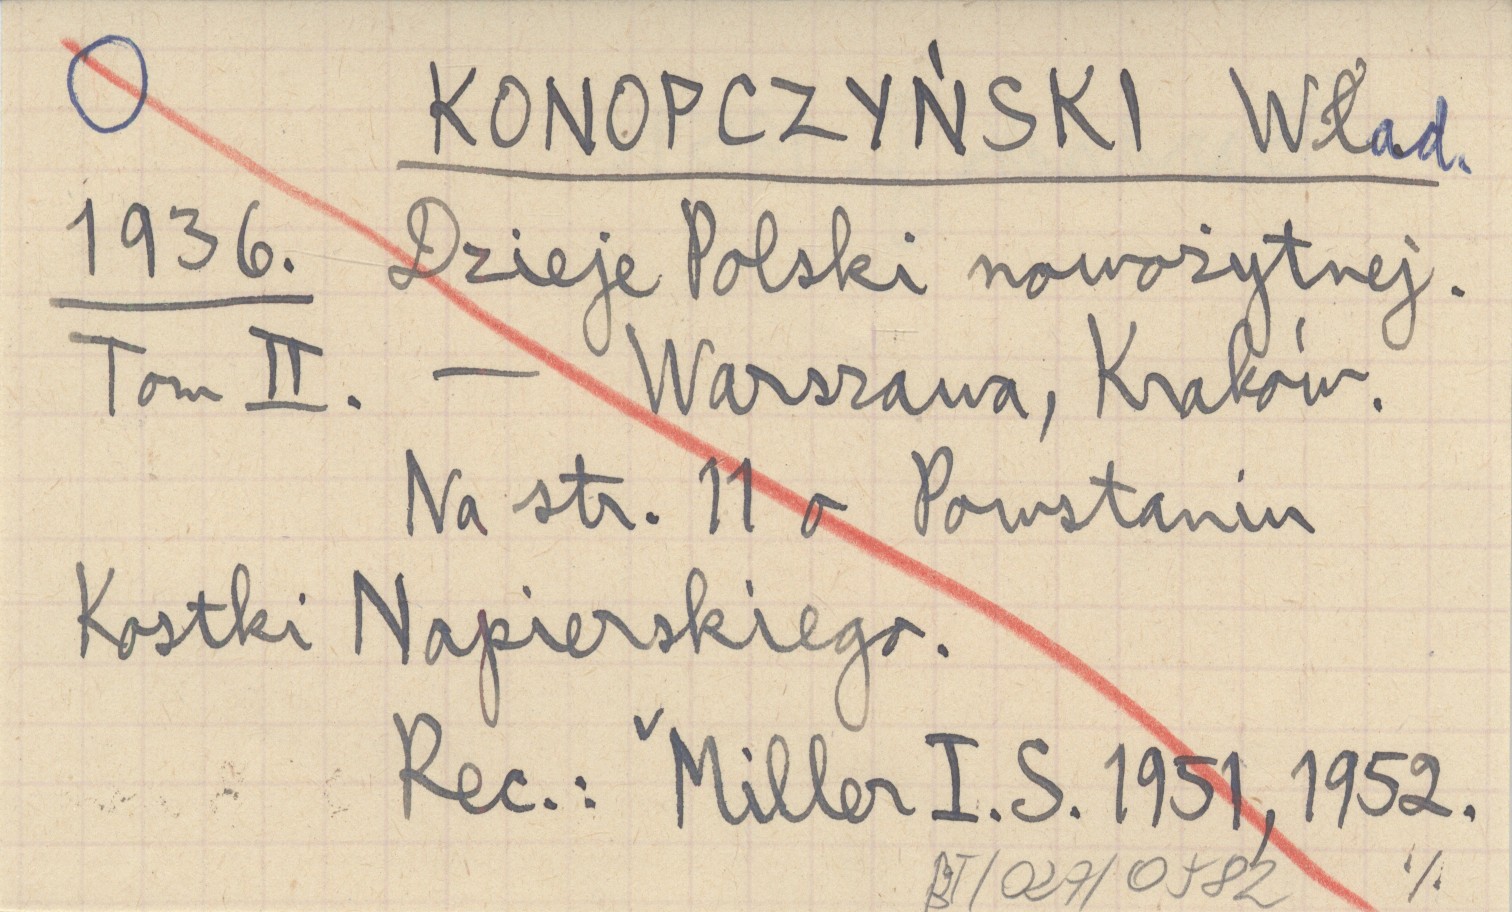 KONOPCZYŃSKI Wład.
1936. Dzieje Polski nowożytnej.
Tom II. — Warszawa, Kraków.
Na str. 11 o Powstaniu
Kostki Napierskiego.
Rec.: Miller I.S. 1951, 1952.
BT/027/0582 1/1